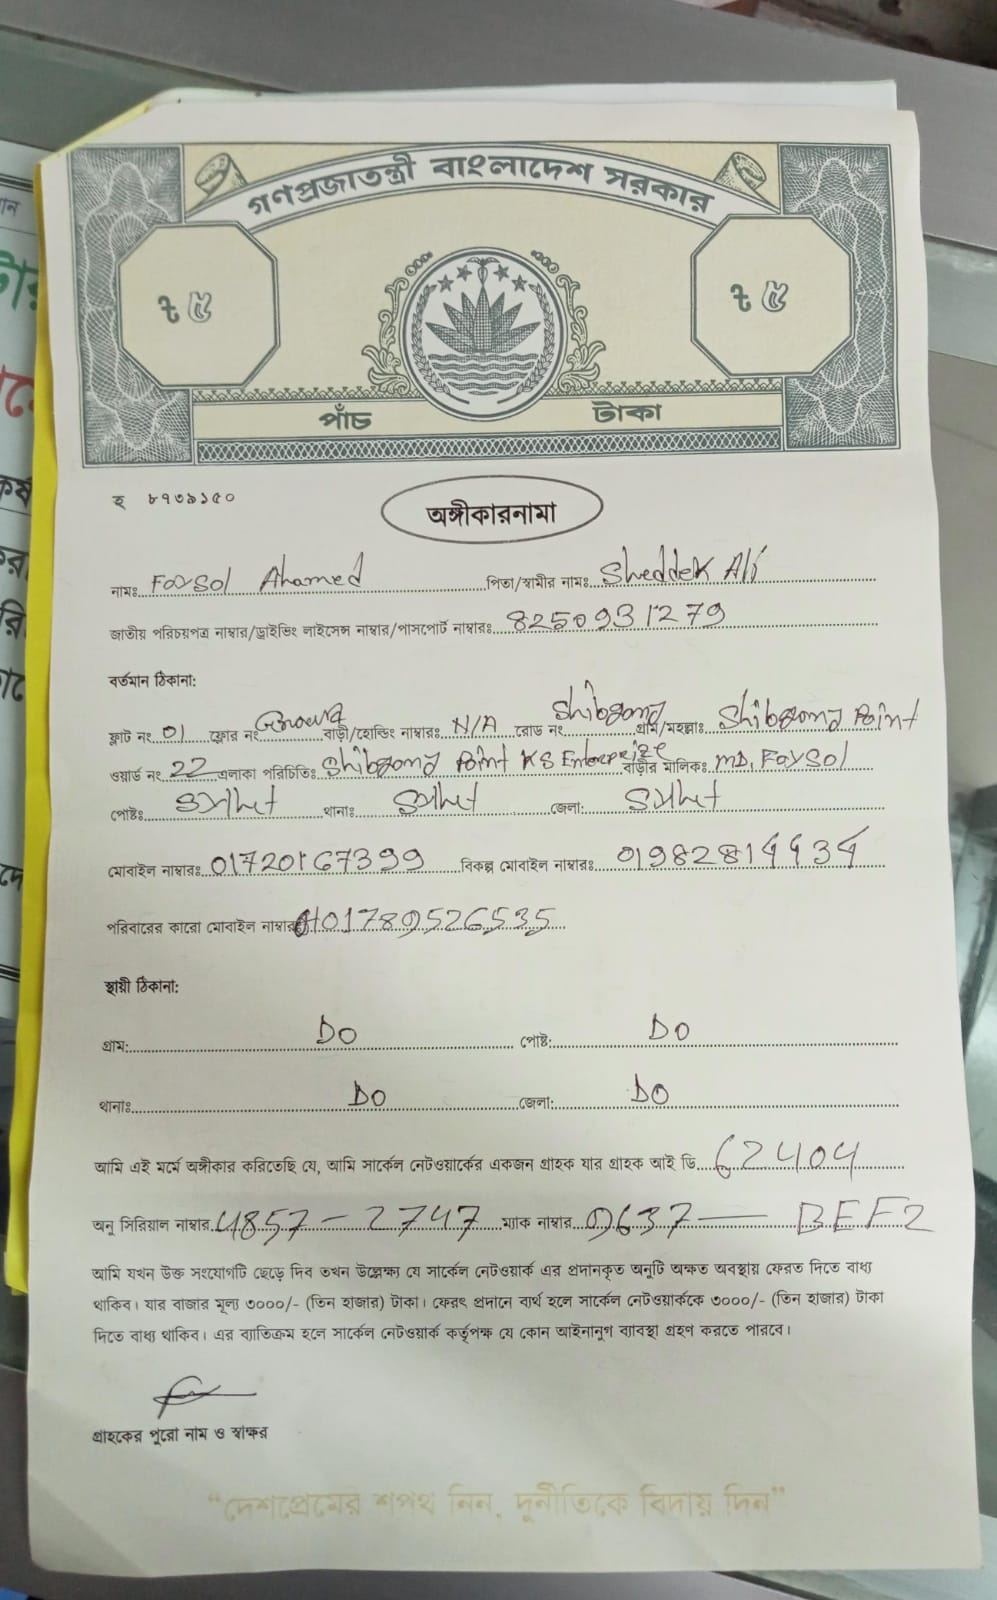 গণপ্রজাতন্ত্রী বাংলাদেশ সরকার
৳ ৫ ৳ ৫
পাঁচ টাকা
হ ৮৭৩৯১৫০
অঙ্গীকারনামা
নামঃ Faysol Ahamed পিতা/স্বামীর নামঃ Sheddek Ali
জাতীয় পরিচয়পত্র নাম্বার/ড্রাইভিং লাইসেন্স নাম্বার/পাসপোর্ট নাম্বারঃ 8250931279
বর্তমান ঠিকানা:
ফ্লাট নং 01 ফ্লোর নং বাড়ী/হোল্ডিং নাম্বারঃ N/A রোড নং Shibgong গ্রাম/মহল্লাঃ Shibgong Point
ওয়ার্ড নং 22 এলাকা পরিচিতিঃ Shibgong Point KS Enterprize বাড়ীর মালিকঃ MD, Faysol
পোষ্টঃ Sylhet থানাঃ Sylhet জেলা: Sylhet
মোবাইল নাম্বারঃ 01720167399 বিকল্প মোবাইল নাম্বারঃ
পরিবারের কারো মোবাইল নাম্বার 01789526535
স্থায়ী ঠিকানা:
গ্রাম: DO পোষ্ট: DO
থানাঃ DO জেলা: DO
আমি এই মর্মে অঙ্গীকার করিতেছি যে, আমি সার্কেল নেটওয়ার্কের একজন গ্রাহক যার গ্রাহক আই ডি 62404
অনু সিরিয়াল নাম্বার 4857-2747 ম্যাক নাম্বার 9637 — BEF2
আমি যখন উক্ত সংযোগটি ছেড়ে দিব তখন উল্লেক্ষ্য যে সার্কেল নেটওয়ার্ক এর প্রদানকৃত অনুটি অক্ষত অবস্থায় ফেরত দিতে বাধ্য
থাকিব। যার বাজার মূল্য ৩০০০/- (তিন হাজার) টাকা। ফেরৎ প্রদানে ব্যর্থ হলে সার্কেল নেটওয়ার্ককে ৩০০০/- (তিন হাজার) টাকা
দিতে বাধ্য থাকিব। এর ব্যতিক্রম হলে সার্কেল নেটওয়ার্ক কর্তৃপক্ষ যে কোন আইনানুগ ব্যাবস্থা গ্রহণ করতে পারবে।
গ্রাহকের পুরো নাম ও স্বাক্ষর
"দেশপ্রেমের শপথ নিন, দুর্নীতিকে বিদায় দিন"